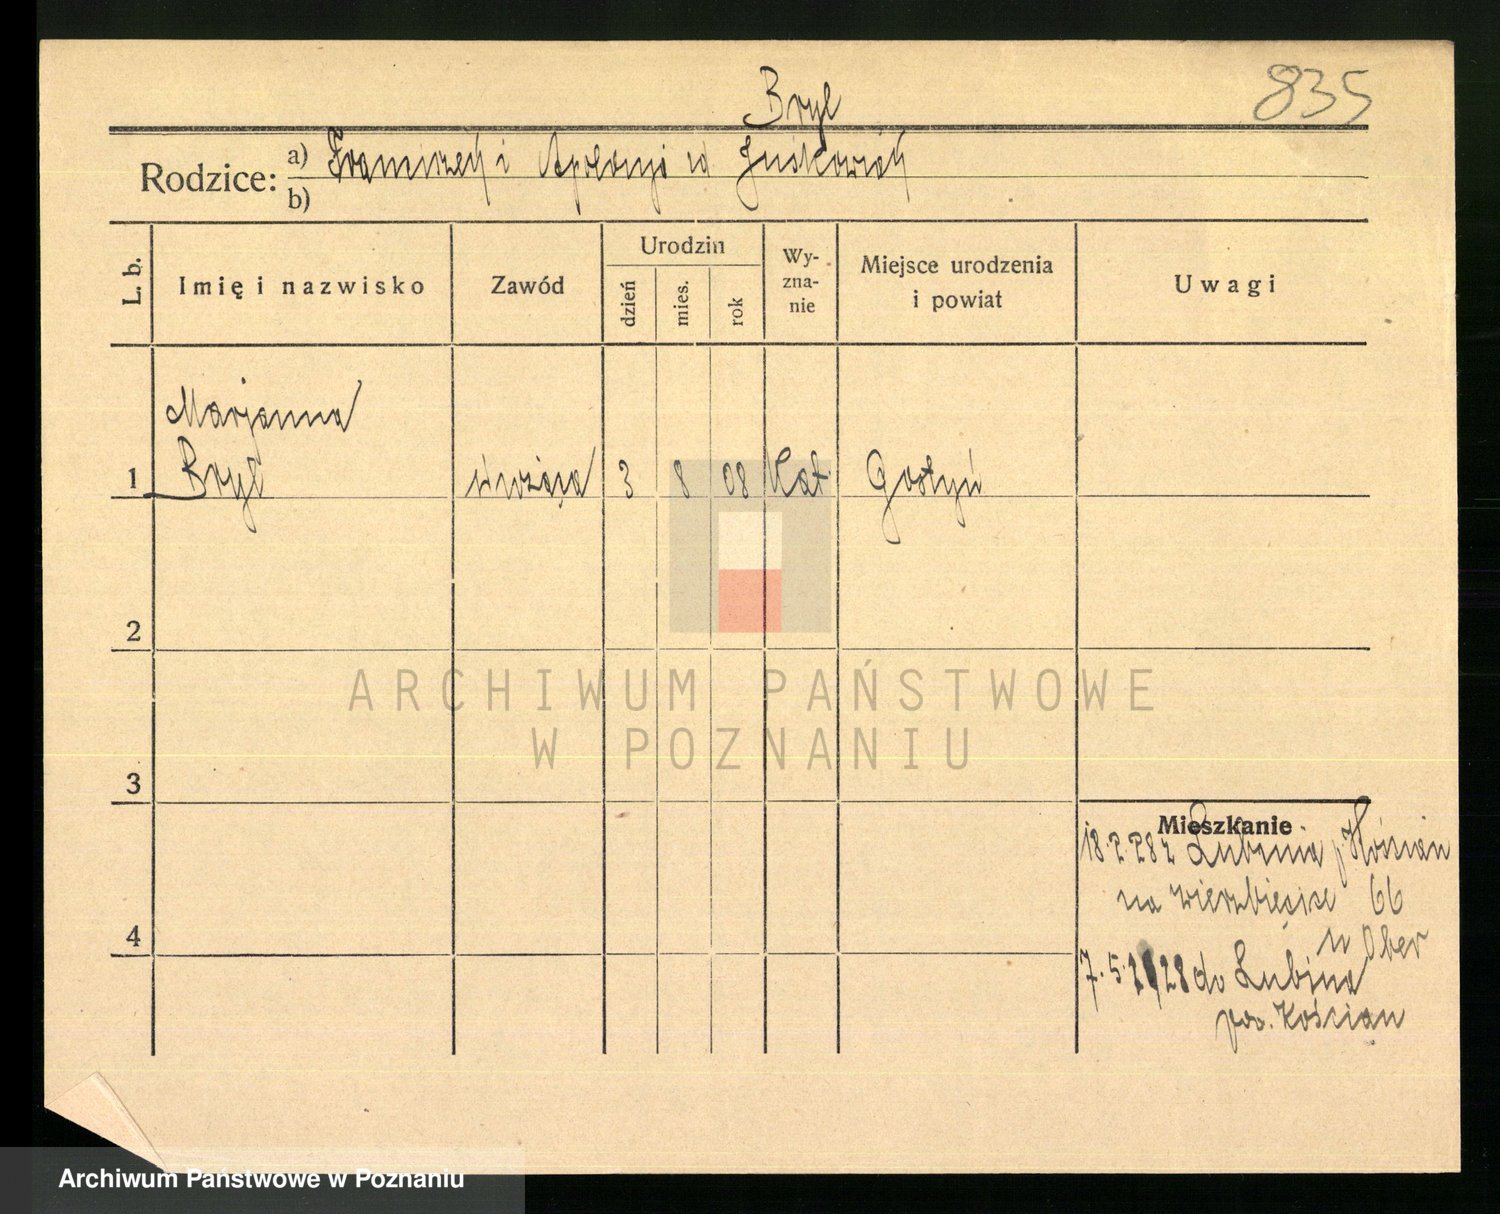 835
Bryl
Rodzice: a) Franciszek i Apolonja zd Juskowiak
b)
L. b. Imię i nazwisko Zawód Urodzin dzień mies. rok Wy-zna-nie Miejsce urodzenia i powiat Uwagi
Marjanna
1 Bryl służąca 3 8 08 Kat Gostyń
2
ARCHIWUM PAŃSTWOWE
W POZNANIU
3
Mieszkanie
18.2.28 z Lubinia p. Kościan
na Wierzbięcice 66
u Ober
4
7.5. 28 do Lubina
pow. Kościan
Archiwum Państwowe w Poznaniu